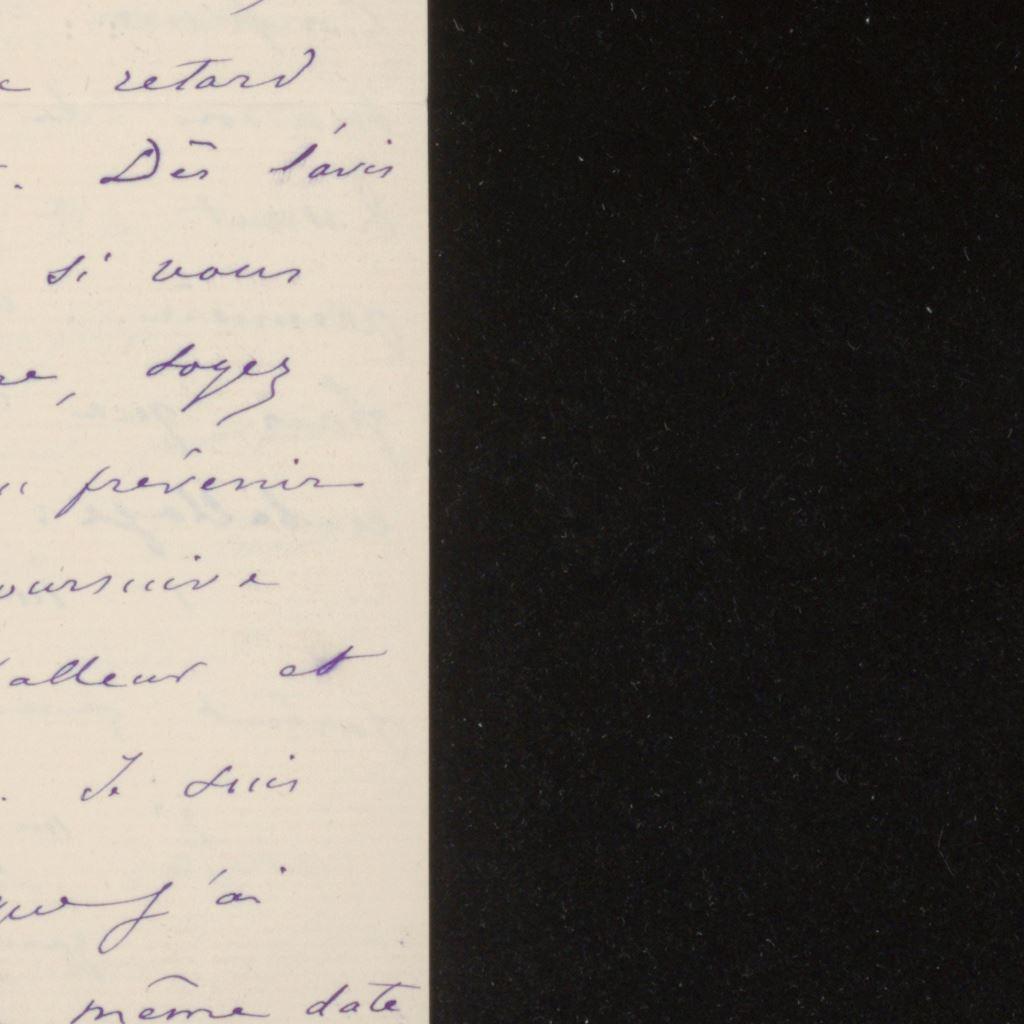 retard
. Dès l'avis
si vous
re, soyez
prévenir
oursuivre
alleur et
. Je suis
que j'ai
même date